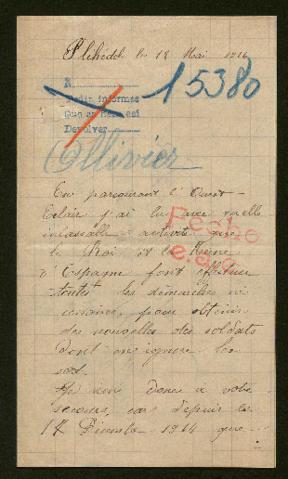 Plihédel le 18 Mai 1916
R
15380
Pedir informes
Que se hizo así
Devolver
Ollivier
En parcourant l'Ouest-
Eclair j'ai lu avec quelle
inlassable activité que
le Roi et la Reine
d'Espagne font effectuer
toutes les démarches né
cessaires, pour obtenir
des nouvelles des soldats
dont on ignore le
sort.
Je viens donc à votre
secours, car depuis le
17 Décembre 1914 que
Fecho